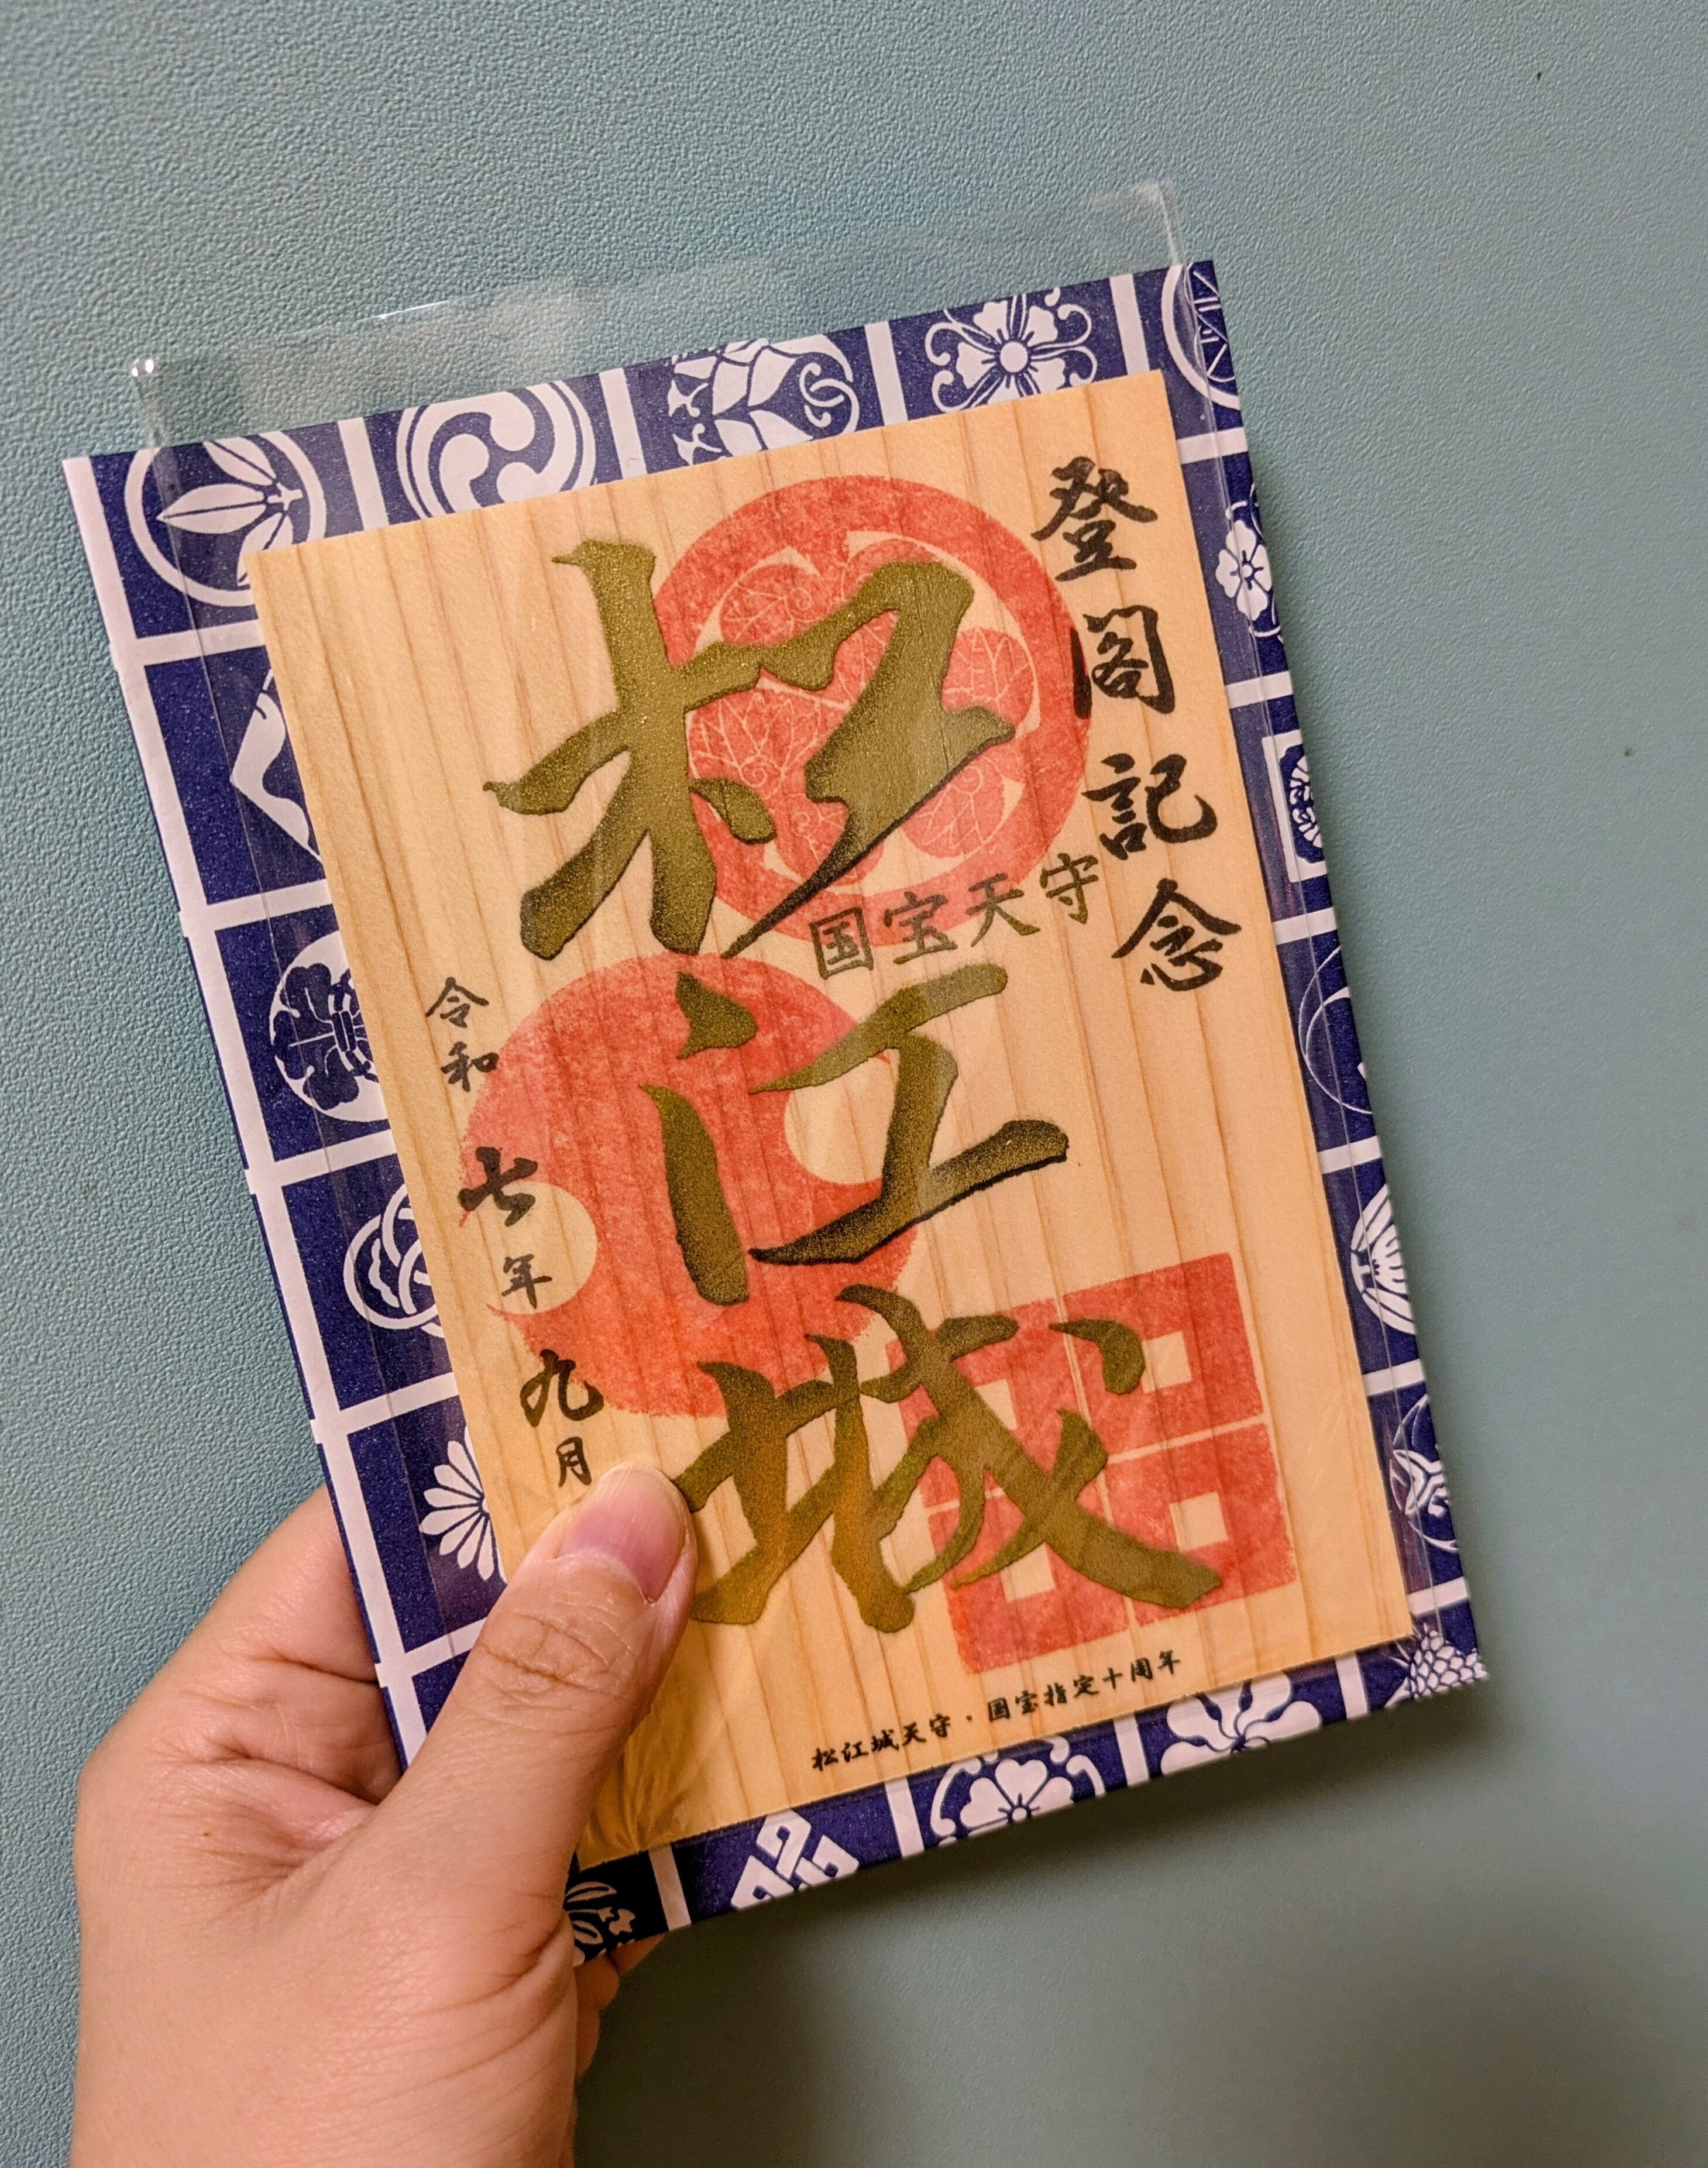 登閣記念
国宝天守
松江城
令和七年九月
松江城天守・国宝指定十周年